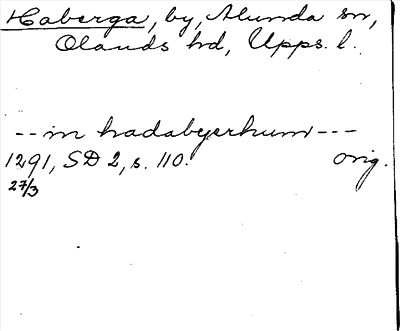 Haberga, by, Alunda sn,
Olands hd, Upps. l.
-- in hadabyerhum ---
1291, SD 2, s. 110. orig.
27/3